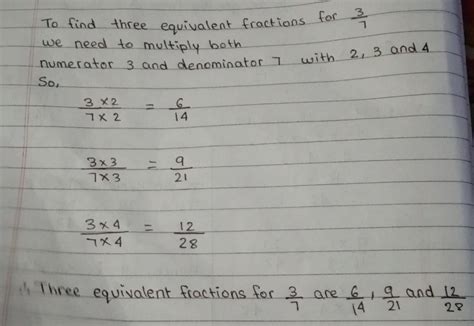 To find three equivalent fractions for 3/7
we need to multiply both
numerator 3 and denominator 7 with 2, 3 and 4
So,
3×2/7×2 = 6/14
3×3/7×3 = 9/21
3×4/7×4 = 12/28
∴ Three equivalent fractions for 3/7 are 6/14, 9/21 and 12/28